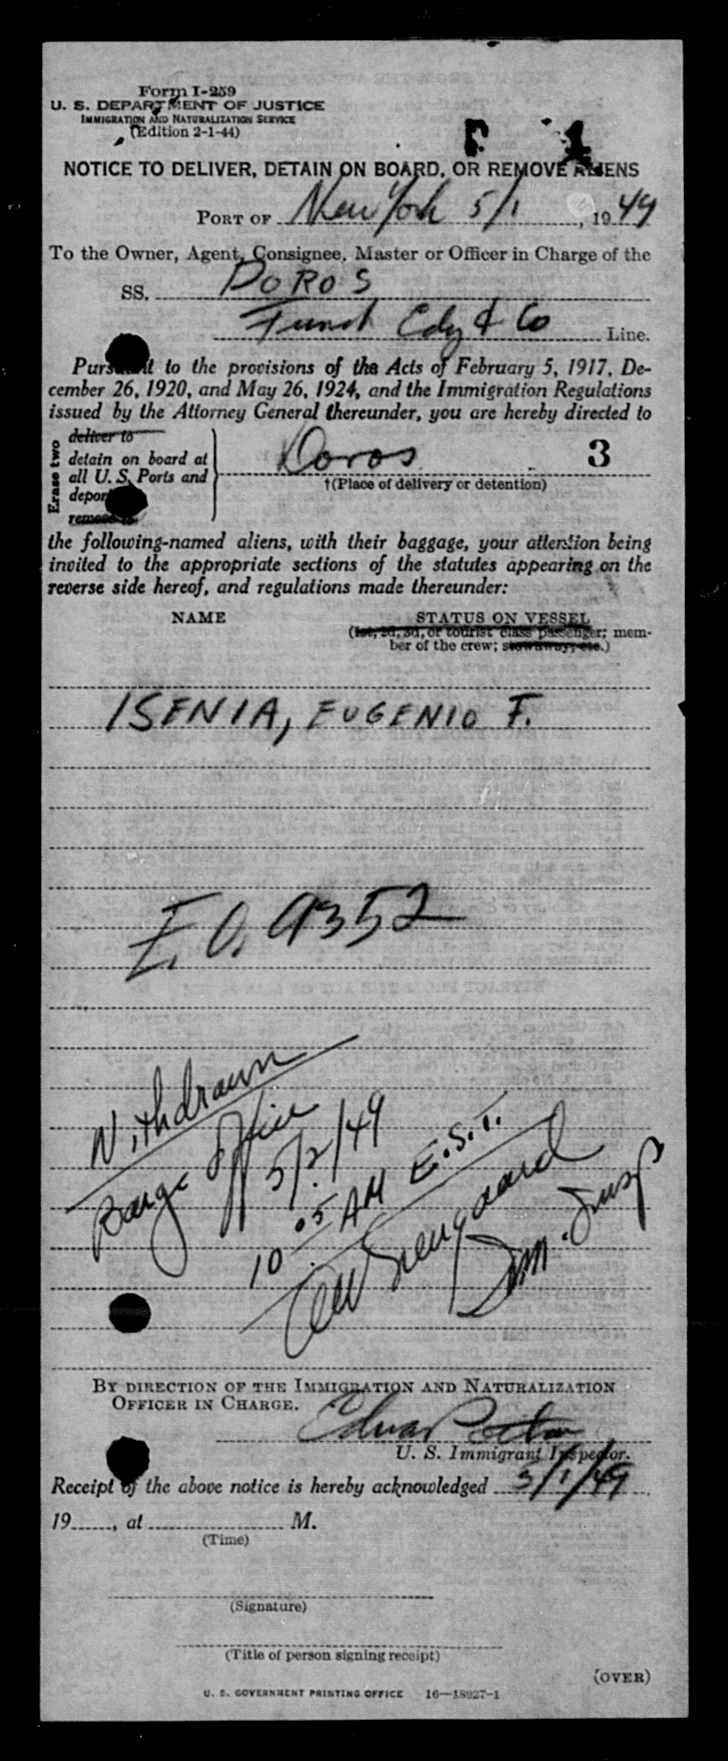 Form I-259
U. S. DEPARTMENT OF JUSTICE
IMMIGRATION AND NATURALIZATION SERVICE
(Edition 2-1-44)
NOTICE TO DELIVER, DETAIN ON BOARD, OR REMOVE ALIENS
PORT OF New York 5/1, 1949
To the Owner, Agent, Consignee, Master or Officer in Charge of the
SS. DOROS
Funch Edy & Co Line.
Pursuant to the provisions of the Acts of February 5, 1917, De-
cember 26, 1920, and May 26, 1924, and the Immigration Regulations
issued by the Attorney General thereunder, you are hereby directed to
Erase two
deliver to
detain on board at
all U. S. Ports and
deport
remove to
Doros 3
†(Place of delivery or detention)
the following-named aliens, with their baggage, your attention being
invited to the appropriate sections of the statutes appearing on the
reverse side hereof, and regulations made thereunder:
NAME STATUS ON VESSEL
(1st, 2d, 3d, or tourist class passenger; mem-
ber of the crew; stowaway, etc.)
ISENIA, EUGENIO F.
E.O. 9352
Withdrawn
Barge Office
5/2/49
10 05 AM E.S.T.
Imm. Insp
BY DIRECTION OF THE IMMIGRATION AND NATURALIZATION
OFFICER IN CHARGE.
U. S. Immigrant Inspector.
Receipt of the above notice is hereby acknowledged 5/1/49
19......, at .................... M.
(Time)
(Signature)
(Title of person signing receipt)
(OVER)
U. S. GOVERNMENT PRINTING OFFICE 16—18927-1